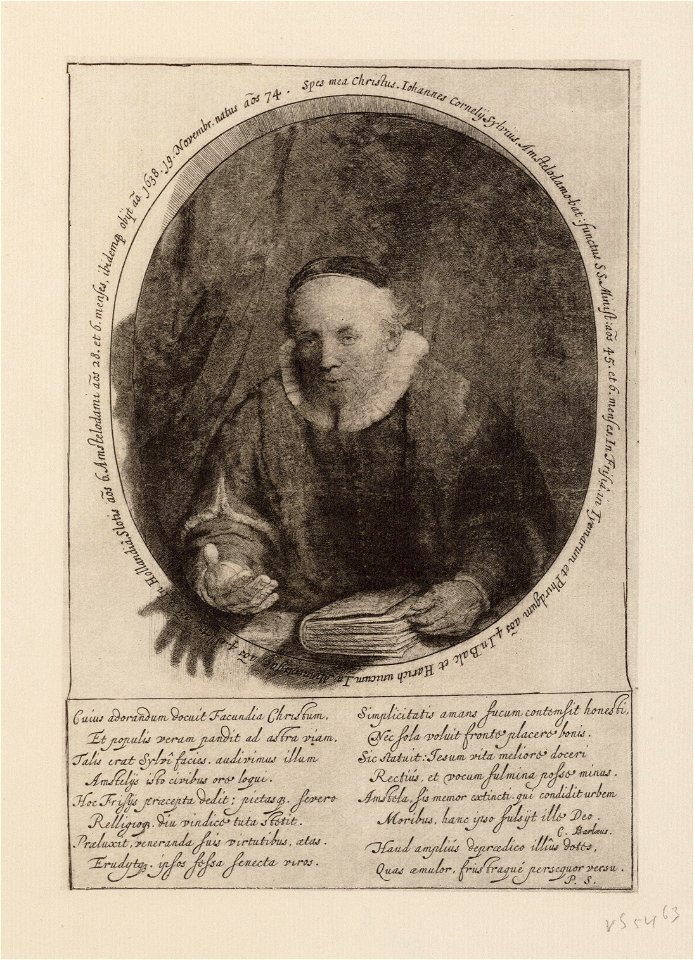 Spes mea Christus. Iohannes Cornelÿ Sylvius Amstelodamo-bat: functus S S. Minist: aōs 45. et 6. menses. In Frisiâ in Tyemarum et Phirdgum aōs 4. In Balc et Harich unicum. In aōs 4. in Hollandiâ Slotis aōs 6. Amstelodami aōs 28. et 6. menses, ibidemq₃ obÿt aō 1638. 19. Novembr. natus aōs 74.
Cuius adorandum docuit Facundia Christum,
Et populis veram pandit ad astra viam.
Talis erat Sylvî facies. audivimus illum
Amstelÿs isto civibus ore loqui.
Hoc Frisÿs præcepta dedit; pietasq₃ severo
Relligioq₃ diu vindice tuta stetit.
Præluxit, veneranda suis virtutibus, ætas.
Erudÿtq₃ ipsos fessa senecta viros.
Simplicitatis amans fucum contemsit honesti,
Nec sola voluit fronte placere bonis.
Sic statuit: Iesum vita meliore doceri
Rectius, et vocum fulmina posse minus.
Amstela, sis memor extincti qui condidit urbem
Moribus, hanc ipso fulsÿt ille Deo.
C. Barlæus.
Haud amplius deprædico illius dotes,
Quas æmulor, frustraque persequor versu.
P. S.